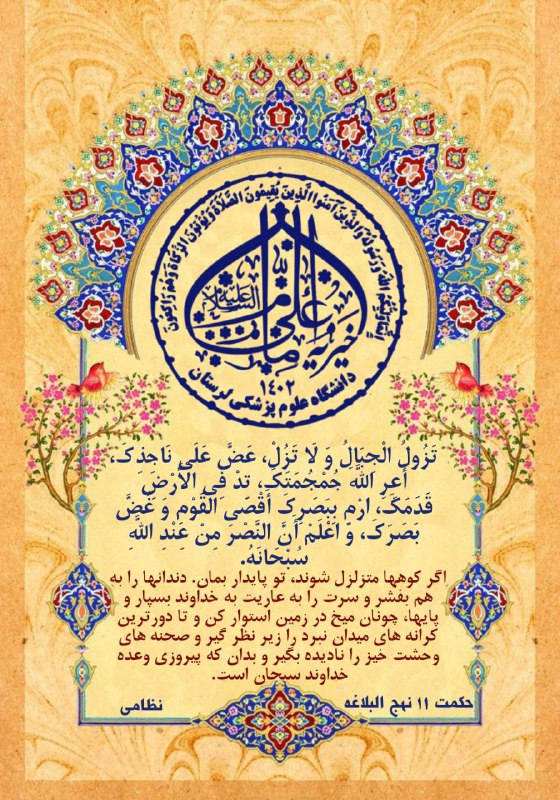 إِنَّمَا وَلِيُّكُمُ اللَّهُ وَرَسُولُهُ وَالَّذِينَ آمَنُوا الَّذِينَ يُقِيمُونَ الصَّلَاةَ وَيُؤْتُونَ الزَّكَاةَ وَهُمْ رَاكِعُونَ
خیریه
علی
علیه السلام
۱۴۰۲
دانشگاه علوم پزشکی لرستان
تَزُولُ الْجِبَالُ وَ لَا تَزُلْ، عَضَّ عَلَى نَاجِذِكَ،
أَعِرِ اللَّهَ جُمْجُمَتَكَ، تِدْ فِي الْأَرْضِ
قَدَمَكَ، ارْمِ بِبَصَرِكَ أَقْصَى الْقَوْمِ وَ غُضَّ
بَصَرَكَ، وَ اعْلَمْ أَنَّ النَّصْرَ مِنْ عِنْدِ اللَّهِ
سُبْحَانَهُ.
اگر کوهها متزلزل شوند، تو پایدار بمان. دندانها را به
هم بفشر و سرت را به عاریت به خداوند بسپار و
پایها، چونان میخ در زمین استوار کن و تا دورترین
کرانه های میدان نبرد را زیر نظر گیر و صحنه های
وحشت خیز را نادیده بگیر و بدان که پیروزی وعده
خداوند سبحان است.
حکمت ۱۱ نهج البلاغه
نظامی